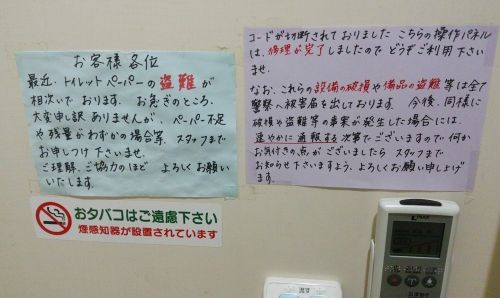 お客様各位
最近、トイレットペーパーの盗難が
相次いでおります。お急ぎのところ、
大変申し訳ありませんが、ペーパー不足
や残量がわずかの場合等、スタッフまで
お申しつけ下さいませ。
ご理解、ご協力のほど よろしくお願い
いたします。
コードが切断されておりました こちらの操作パネル
は、修理が完了しましたので どうぞご利用下さい
ませ。
なお、これらの設備の破損や備品の盗難等は全て
警察へ被害届を出しております。今後、同様に
破損や盗難等の事実が発生した場合には、
速やかに通報する次第でございますので何か
お気付きの点がございましたら スタッフまで
お知らせ下さいますよう、よろしくお願い申し上げ
ます。
おタバコはご遠慮下さい
煙感知器が設置されています
流す